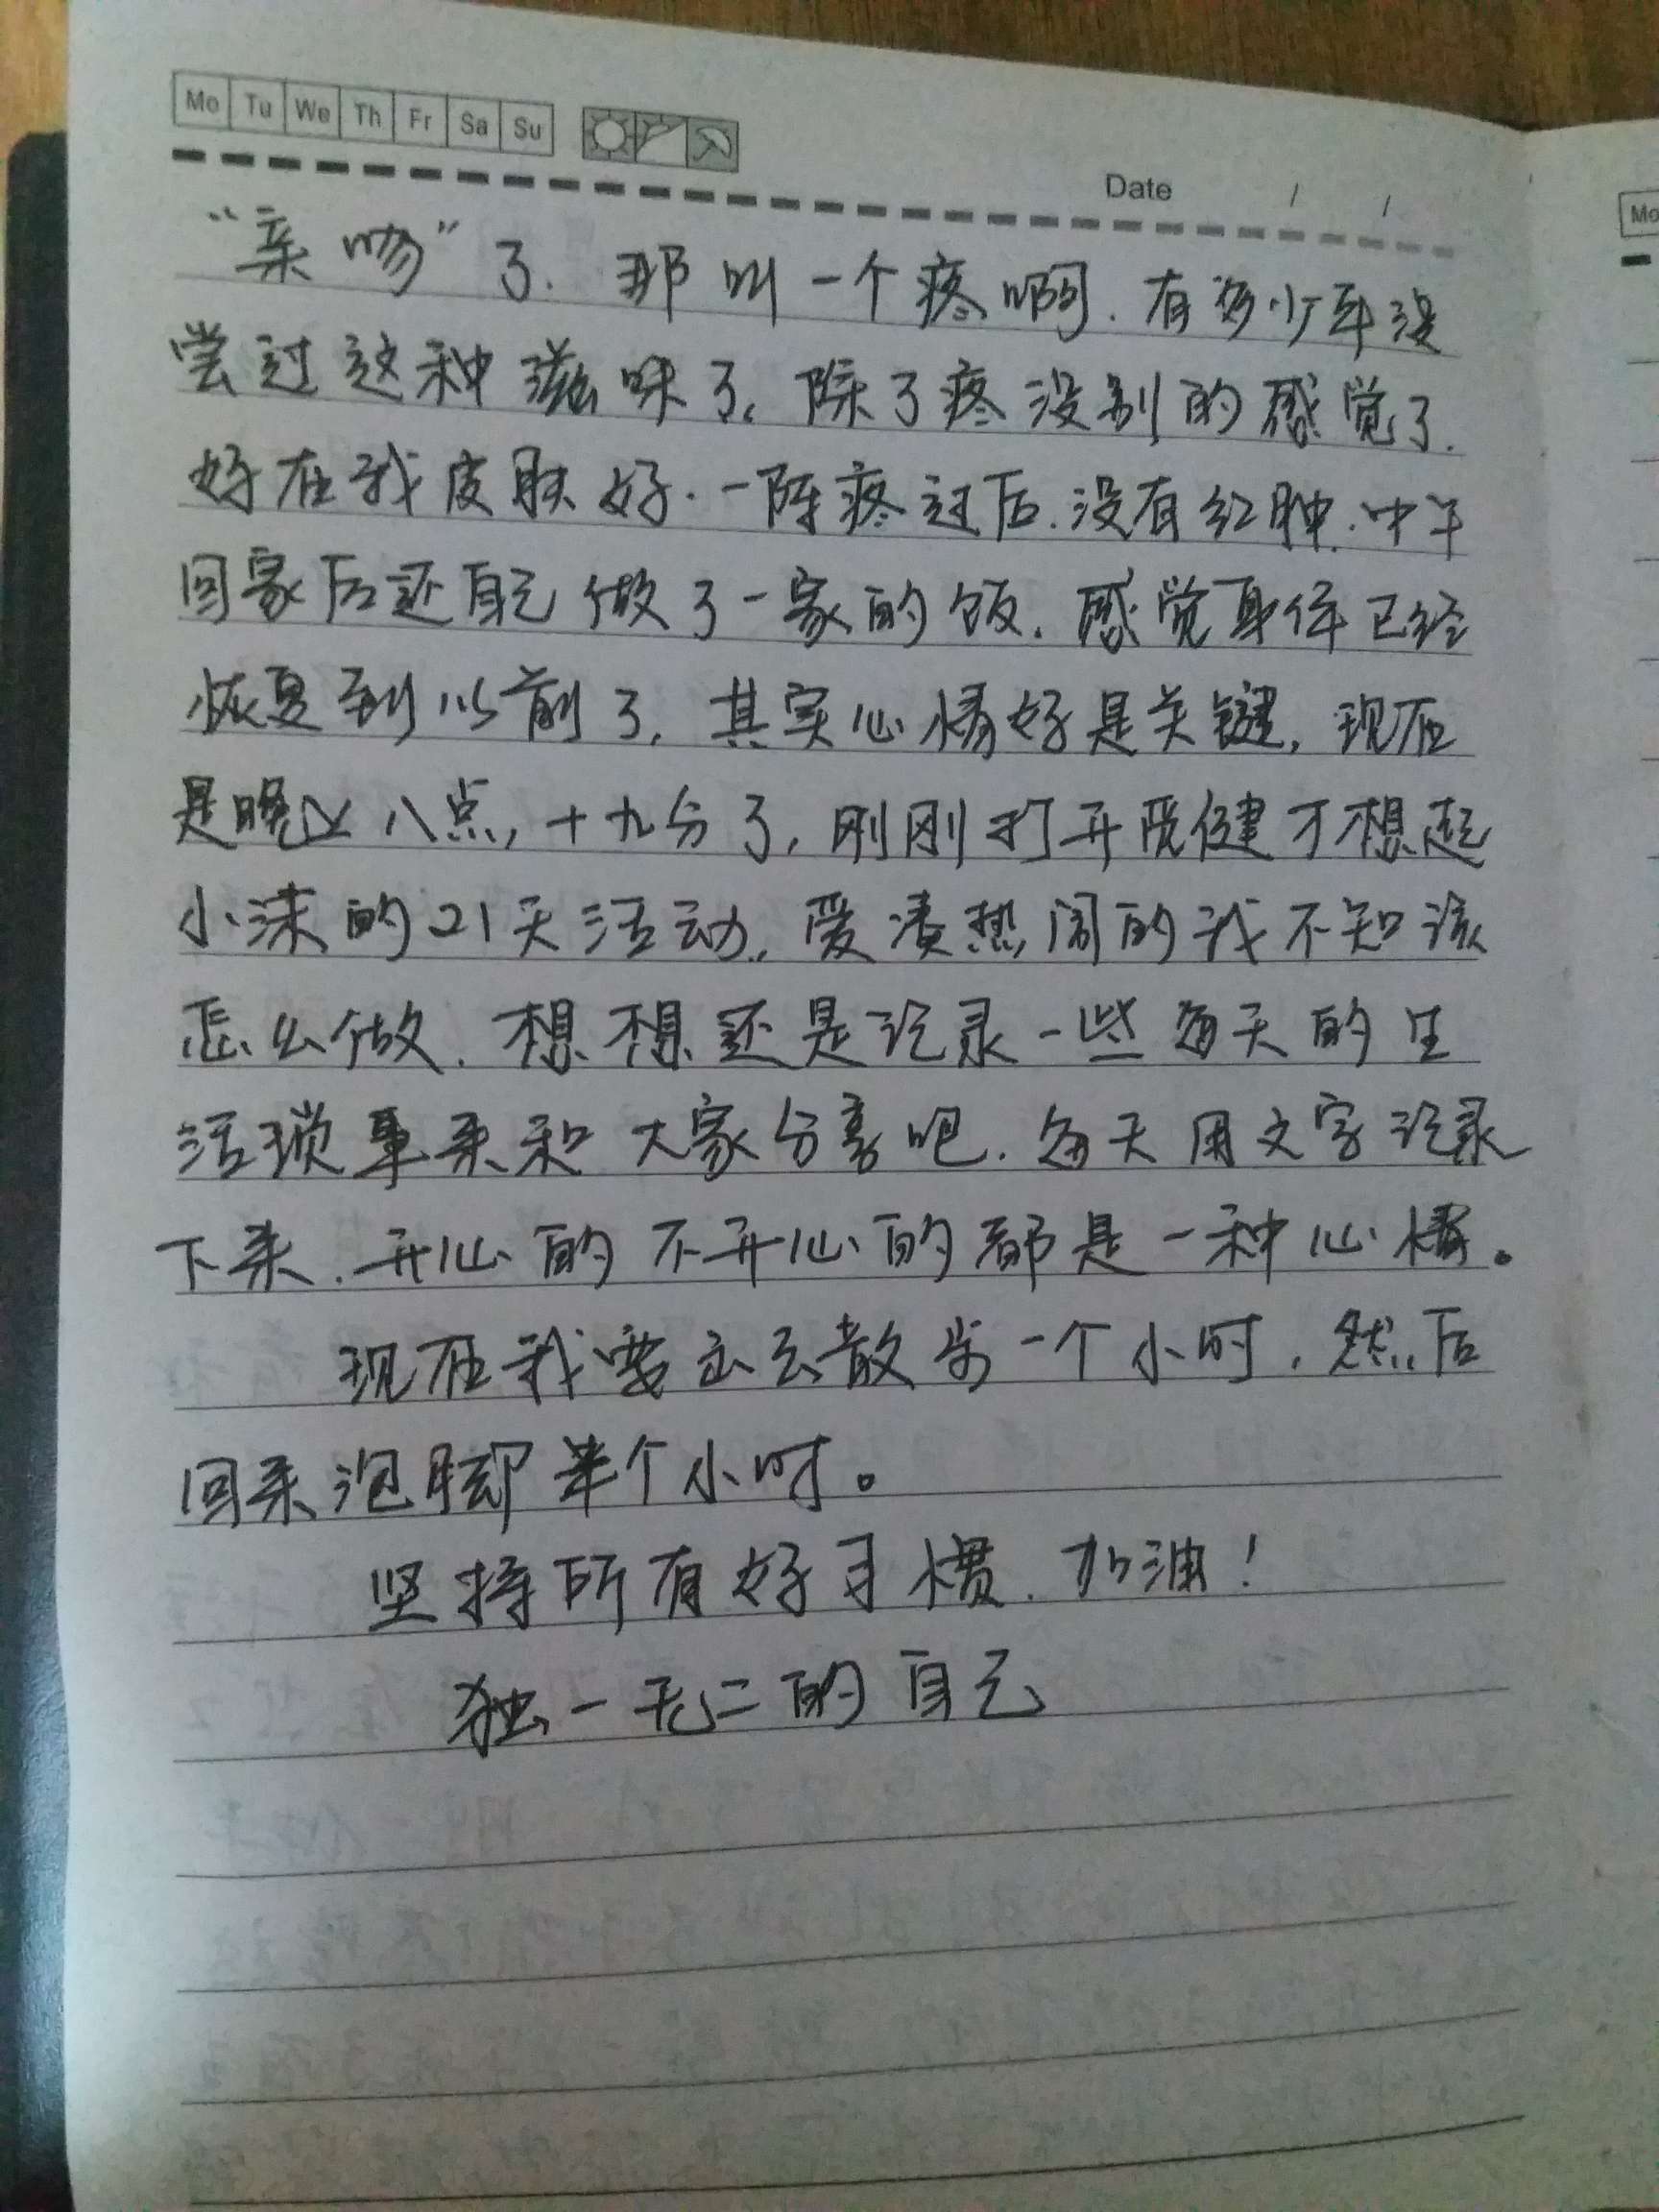 Mo Tu We Th Fr Sa Su
Date / /
“亲吻”了. 那叫一个疼啊. 有多少年没
尝过这种滋味了, 除了疼没别的感觉了.
好在我皮肤好. 一阵疼过后. 没有红肿. 中午
回家后还自己做了一家的饭. 感觉身体已经
恢复到以前了, 其实心情好是关键, 现在
是晚上八点, 十九分了, 刚刚打开悦健才想起
小沫的21天活动, 爱凑热闹的我不知该
怎么做. 想想还是记录一些每天的生
活琐事来和大家分享吧. 每天用文字记录
下来. 开心的不开心的都是一种心情。
现在我要出去散步一个小时, 然后
回来泡脚半个小时。
坚持所有好习惯. 加油!
独一无二的自己
Mo